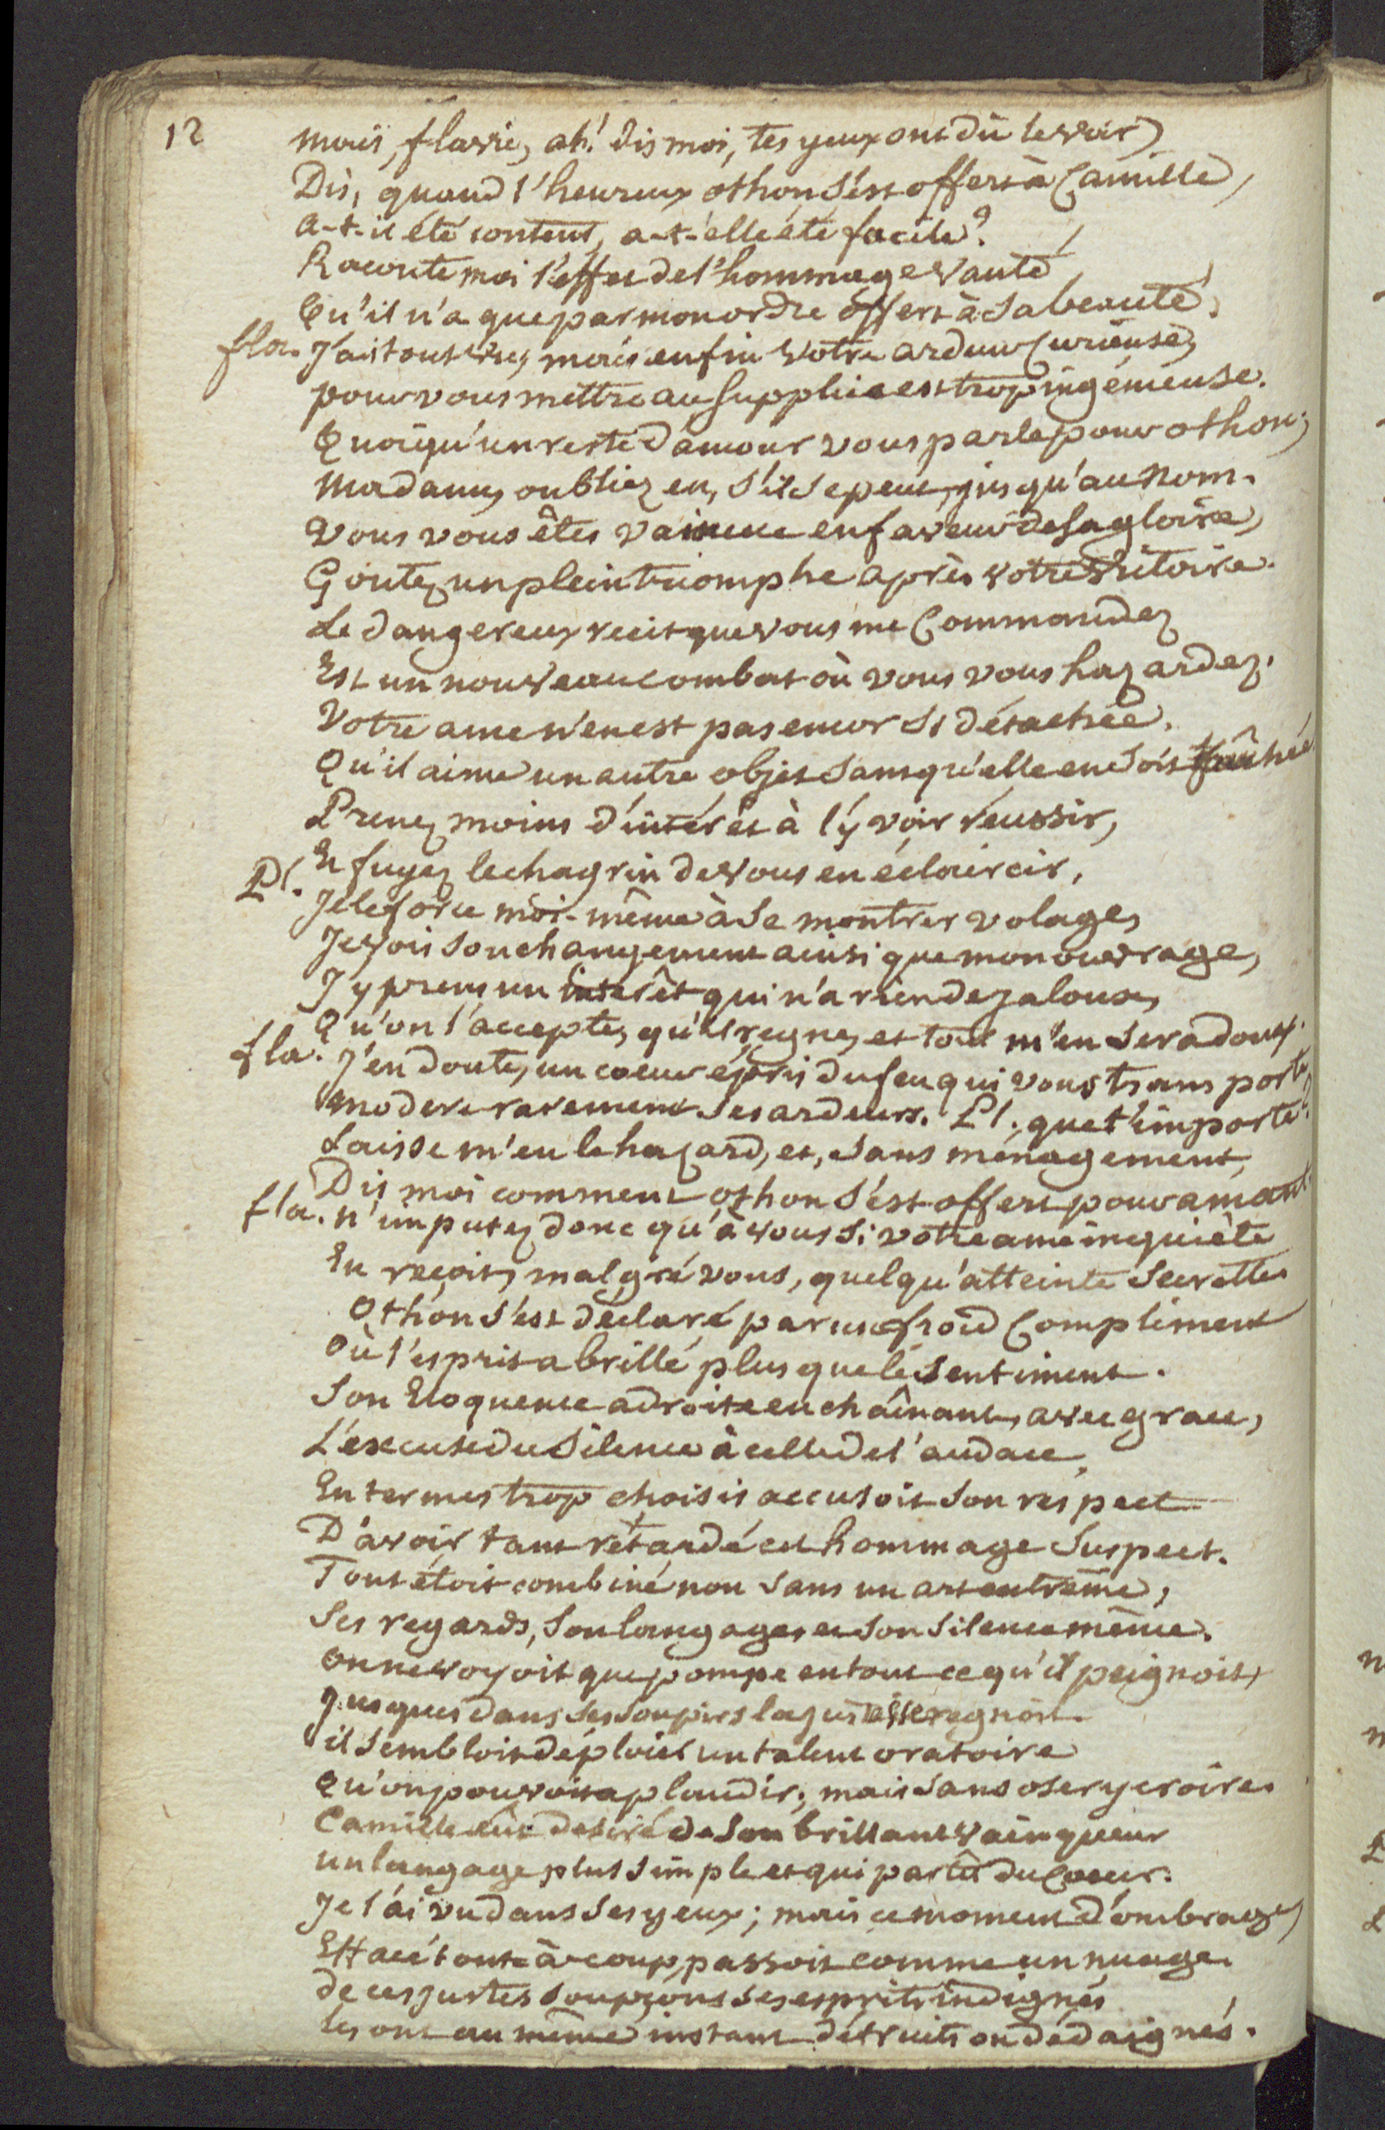 12
mais, flavie, ah! dis moi, tes yeux ont dû le voir,
Dis, quand l'heureux othon s'est offert à Camille,
a-t-il été content, a-t-elle été facile?
Raconte moi l'effet de l'hommage vanté
Qu'il n'a que par mon ordre offert à sa beauté.
fla. J'ai tout vu, mais enfin votre ardeur curieuse,
pour vous mettre au supplice est trop ingénieuse.
Quoiqu'un reste d'amour vous parle pour othon;
Madame, oubliez en, s'il se peut, jusqu'au nom.
Vous vous êtes vaincue en faveur de sa gloire,
Goutez un plein triomphe après votre victoire.
Le dangereux recit que vous me Commandez
Est un nouveau combat où vous vous hazardez.
Votre ame n'en est pas encor si détachée.
Qu'il aime un autre objet sans qu'elle en soit fâchée
Prenez moins d'intérêt à l'y voir réussir,
Et fuyez le chagrin de vous en éclaircir.
Pl. Je le force moi-même à se montrer volage,
Je vois son changement ainsi que mon ouvrage,
J'y prens un interêt qui n'a rien de jaloux,
Qu'on l'accepte, qu'il regne, et tout m'en sera doux.
fla. J'en doute, un coeur épris du feu qui vous transporte
modere rarement ses ardeurs. Pl. que t'importe?
Laisse m'en le hazard, et, sans ménagement,
Dis moi comment othon s'est offert pour amant.
fla. n'imputez donc qu'à vous si votre ame inquiète
En reçoit, malgré vous, quelqu'atteinte secrette.
Othon s'est déclaré par un froid Compliment
Où l'esprit a brillé plus que le sentiment.
Son Eloquence adroite enchaînant, avec grace,
L'excuse du silence à celle de l'audace,
En termes trop choisis accusoit son respect
D'avoir tant retardé cet hommage suspect.
Tout étoit combiné non sans un art extrême,
Ses regards, son langage, et son silence même.
on ne voyoit que pompe en tout ce qu'il peignoit,
Jusques dans ses soupirs la justesse regnoit.
il sembloit déploier un talent oratoire
Qu'on pouvoit aplaudir; mais sans oser y croire.
Camille eût desiré de son brillant vainqueur
un langage plus simple et qui partît du Coeur.
Je l'ai vu dans ses yeux; mais ce moment d'ombrage,
Effacé tout à coup, passoit comme un nuage.
de ces justes soupçons ses esprits indignés
les ont au même instant détruits ou dédaignés.